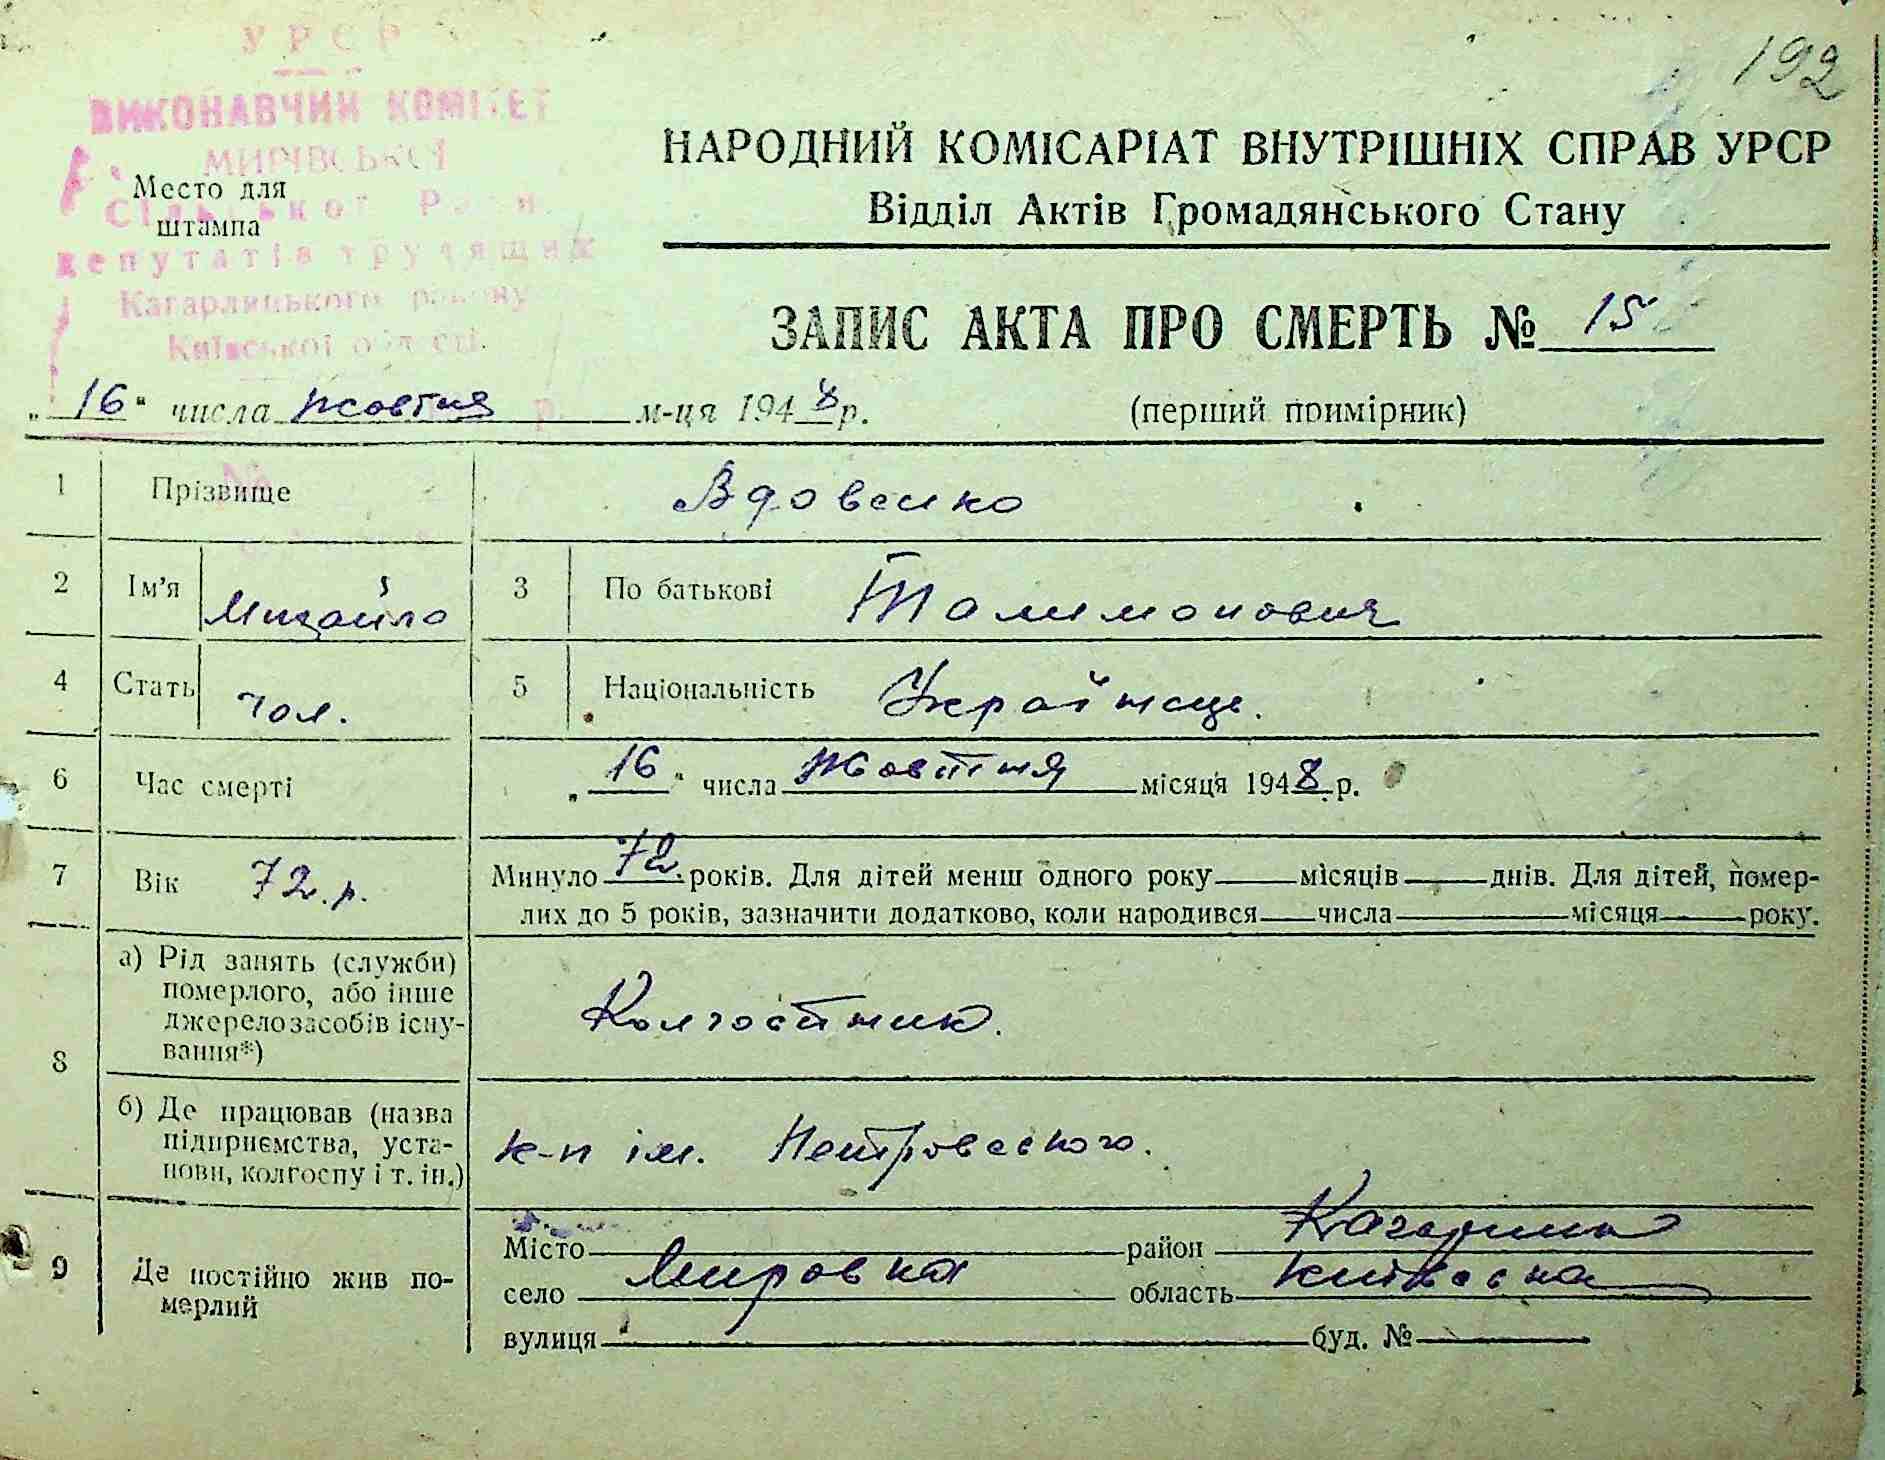 192
УРСР
ВИКОНАВЧИЙ КОМІТЕТ
МИРІВСЬКОЇ
Сільської Ради
депутатів трудящих
Кагарлицького району
Київської області
Место для
штампа
НАРОДНИЙ КОМІСАРІАТ ВНУТРІШНІХ СПРАВ УРСР
Відділ Актів Громадянського Стану
ЗАПИС АКТА ПРО СМЕРТЬ № 15
„16“ числа жовтня м-ця 1948 р.
(перший примірник)
1 Прізвище Вдовенко
2 Ім'я Михайло 3 По батькові Талимонович
4 Стать чол. 5 Національність Українець.
6 Час смерті „16“ числа Жовтня місяця 1948 р.
7 Вік 72 р. Минуло 72 років. Для дітей менш одного року місяців днів. Для дітей, помер-
лих до 5 років, зазначити додатково, коли народився числа місяця року.
8 а) Рід занять (служби)
померлого, або інше
джерело засобів існу-
вання*)
Колгоспник.
б) Де працював (назва
підприємства, уста-
нови, колгоспу і т. ін.)
к-п ім. Петровського.
9 Де постійно жив по-
мерлий
Місто район Кагарлик
село Мировка область Київська
вулиця буд. №